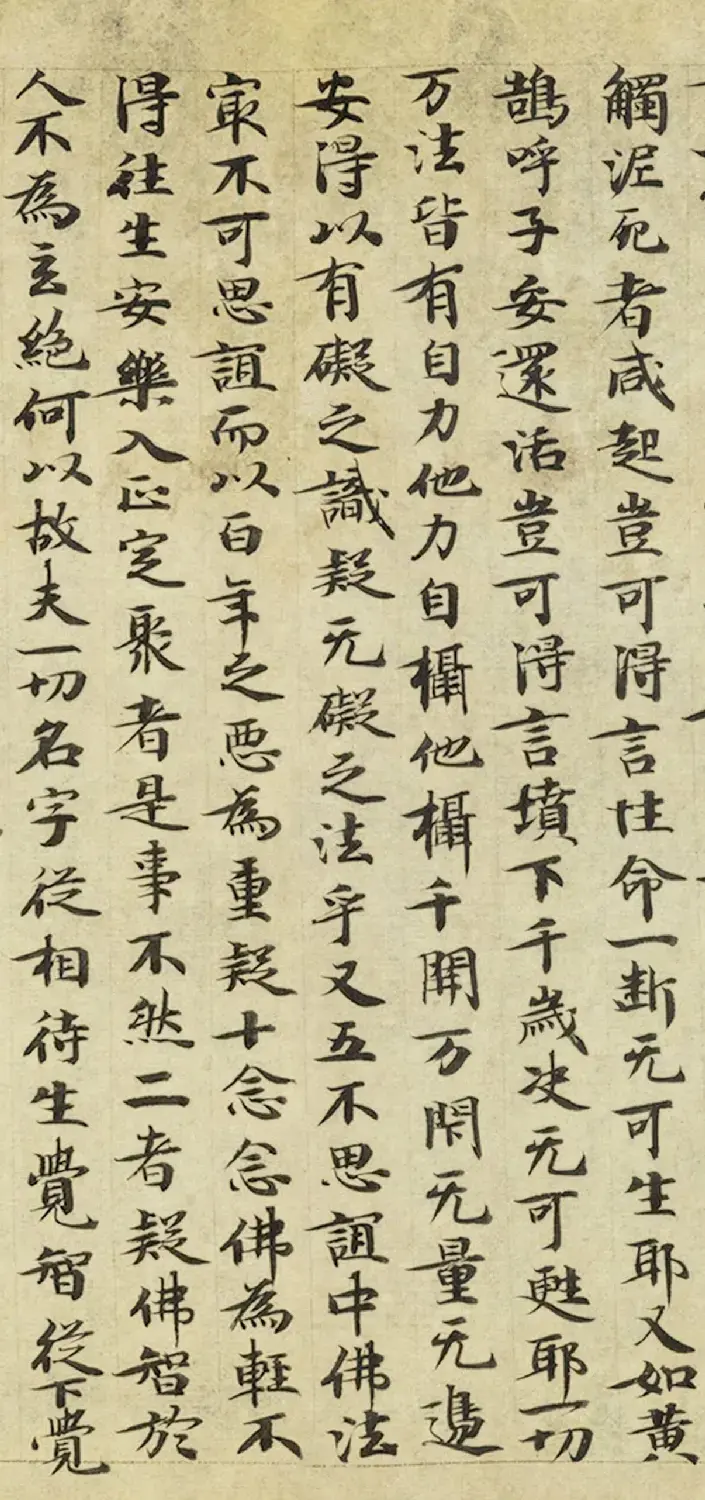 觸泥死者咸起豈可得言性命一断无可生耶又如黄
鵠呼子安還活豈可得言墳下千歳决无可甦耶一切
万法皆有自力他力自攝他攝千開万閇无量无邊
安得以有礙之識疑无礙之法乎又五不思誼中佛法
冣不可思誼而以百年之悪為重疑十念念佛為輕不
得往生安樂入正定聚者是事不然二者疑佛智於
人不為玄絶何以故夫一切名字從相待生覺智從下覺